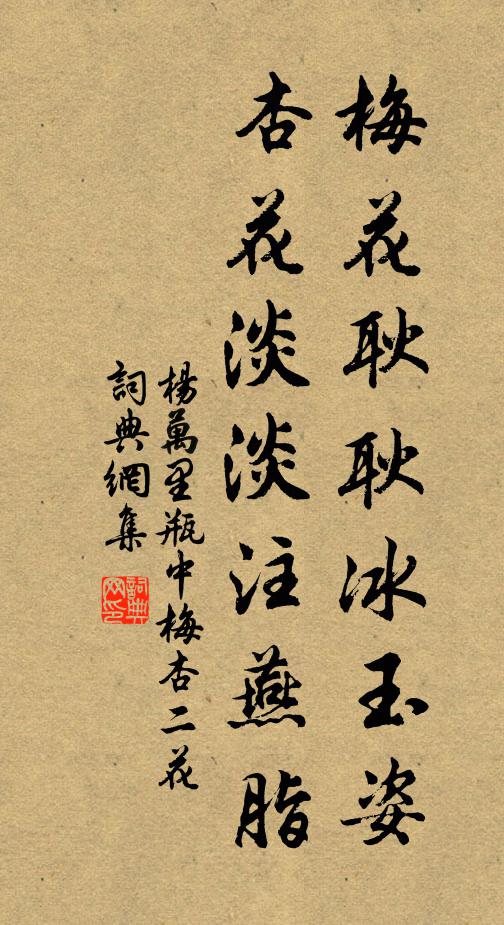 梅花耿耿冰玉姿
杏花淡淡注燕脂
楊萬里瓶中梅杏二花
詞典網集
詞典网印